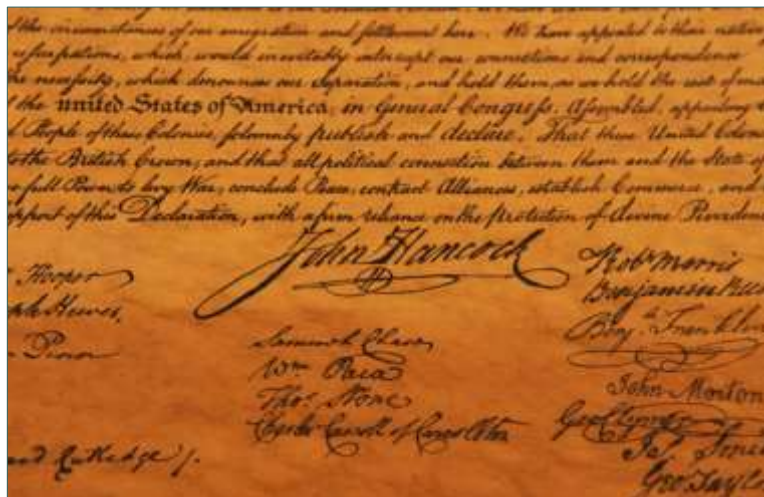 of the circumstances of our emigration and settlement here. We have appealed to their native
usurpations, which, would inevitably interrupt our connections and correspondence
the necessity, which denounces our Separation, and hold them, as we hold the rest of man
the united States of America, in General Congress, Assembled, appealing
People of these Colonies, solemnly publish and declare, That these United Colon
to the British Crown, and that all political connection between them and the State of
full Power to levy War, conclude Peace, contract Alliances, establish Commerce, and
support of this Declaration, with a firm reliance on the protection of divine Providen
John Hancock
Hooper
Hewes,
Penn
Samuel Chase
Wm Paca
Thos. Stone
Charles Carroll of Carrollton
Rutledge /.
Robt Morris
Benjamin Rus
Benj. Franklin
John Morton
Geo Clymer
Jas. Smi
Geo. Taylo